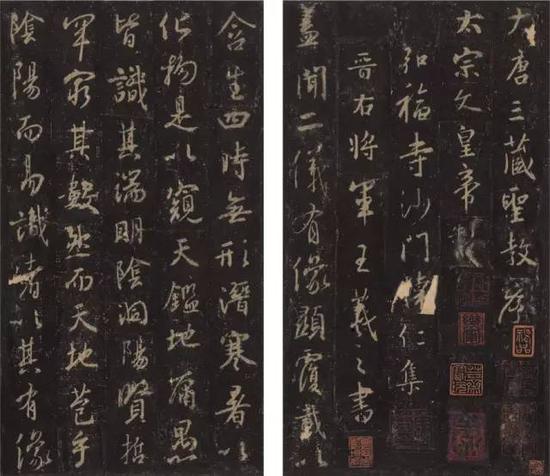 大唐三藏聖教序
太宗文皇帝製
弘福寺沙門懷仁集
晉右將軍王羲之書
蓋聞二儀有像顯覆載以
含生四時無形潛寒暑以
化物是以窺天鑑地庸愚
皆識其端明陰洞陽賢哲
罕窮其數然而天地苞乎
陰陽而易識者以其有像